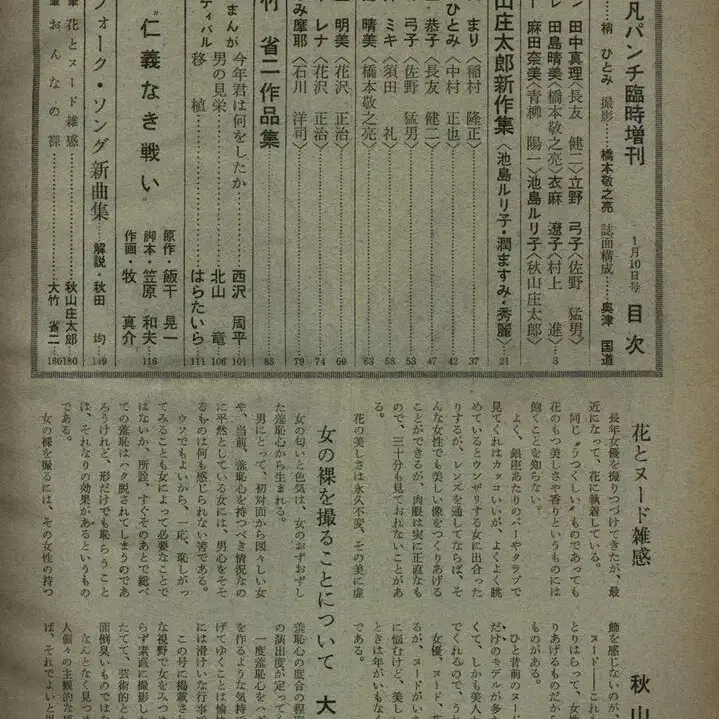 凡パンチ臨時増刊 1月10日号 目次
梢 ひとみ 撮影 橋本敬之亮 誌面構成 奥津 国道
ン 田中真理〈長友 健二〉立野 弓子〈佐野 猛男〉
レ 田島晴美〈橋本敬之亮〉衣麻 遼子〈村上 進〉 3
ー 麻田奈美〈青柳 陽一〉池島ルリ子〈秋山庄太郎〉
山庄太郎新作集〈池島ルリ子・潤ますみ・秀麗〉 21
まり〈稲村 隆正〉 37
ひとみ〈中村 正也〉 42
恭子〈長友 健二〉 47
弓子〈佐野 猛男〉 53
ミキ〈須田 礼〉 58
晴美〈橋本敬之亮〉 63
明美〈花沢 正治〉 69
レナ〈花沢 正治〉 74
み摩耶〈石川 洋司〉 79
竹 省二作品集 85
まんが 今年君は何をしたか 西沢 周平 101
男の見栄 北山 竜 106
ティバル 移植 はらたいら 111
“仁義なき戦い” 原作・飯干 晃一
脚本・笠原 和夫 116
作画・牧 真介
フォーク・ソング新曲集 解説・秋田 均 149
筆 花とヌード雑感 秋山庄太郎 180
筆 おんなの裸 大竹 省二 180
花とヌード雑感 秋山
長年女優を撮りつづけてきたが、最
近になって、花に執着している。
同じ“うつくしい”ものであっても
花のもつ美しさや香りというものには
飽くことを知らない。
よく、銀座あたりのバーやクラブで
見てくれはカッコいいが、よくよく眺
めているとウンザリする女に出合った
りするが、レンズを通してならば、そ
んな女性でも美しい像をつくりあげる
ことができるが、肉眼は実に正直なも
ので、三十分も見ておれないことがあ
る。
花の美しさは永久不変、その美に虚
飾を感じないのが、
ヌード――これ
とりはらって、女性
りあげるものだから
ものがある。
ひと昔前のヌード
だけのモデルが多
くて、しかも美人
でくれるので、うれ
女優、ヌード、
るが、ヌードがいた
に悩むけど、美し
ときは年がいもな
である。
女の裸を撮ることについて 大
女の匂いと色気は、女のおずおずし
た羞恥心から生まれる。
男にとって、初対面から図々しい女
や、当前、羞恥心を持つべき情況なの
に平然としている女には、男心をそそ
るものは何も感じられない筈である。
ウソでもよいから、一応、恥しがっ
てみることも女にとって必要なことで
はないか。所詮、すぐそのあとで総べ
ての羞恥はハク脱されてしまうのであ
ろうけれど、形だけでも恥らうこと
は、それなりの効果があるというもの
である。
女の裸を撮るには、その女性の持つ
羞恥心の度合の程
の演出度が定って
一度羞恥心をハガ
を作るような気持で
げてゆくことは愉快
には滑けいな行事で
この号に掲載され
な視野で女をみつめ
らず素直に撮影し
たてて、芸術的と
面倒臭いものではな
なんとなく見つめ
人個々の主観的な感
ば、それでよいと思